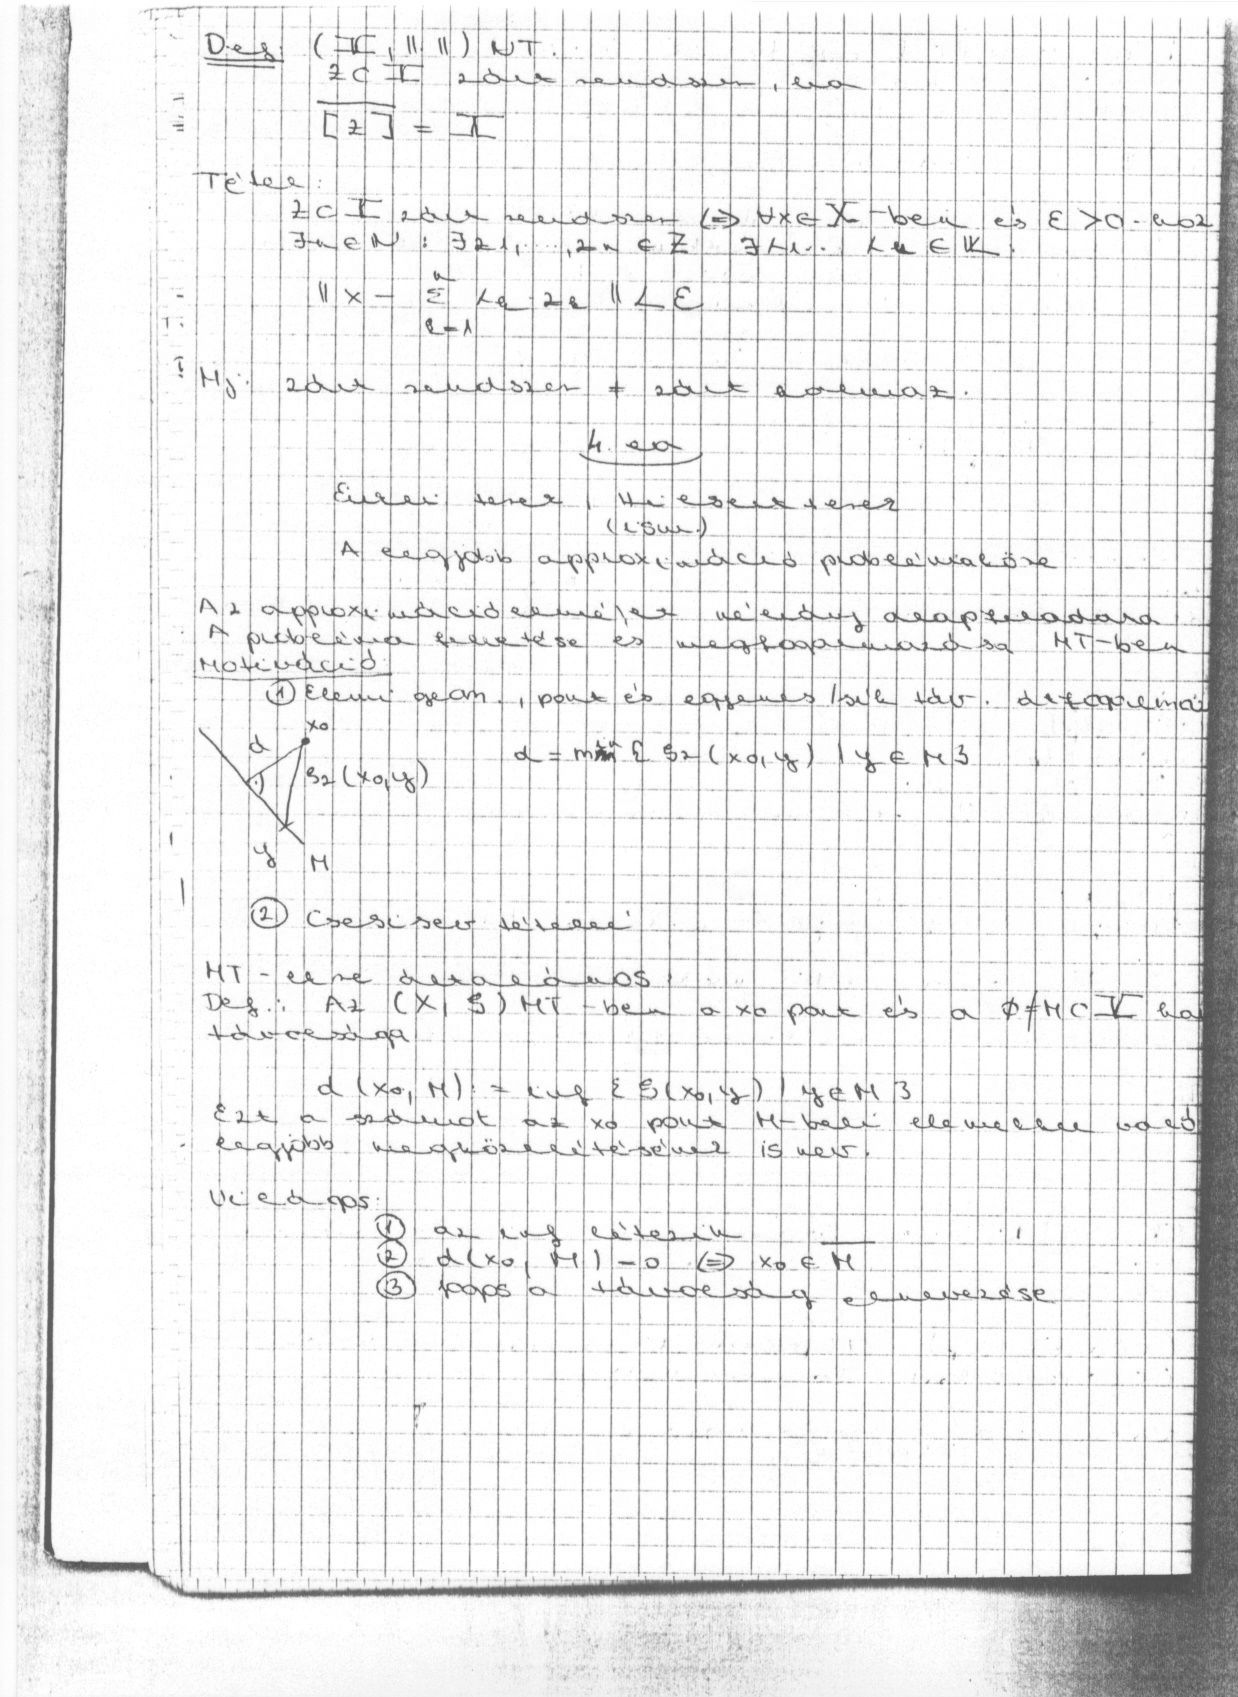 Def: (X, || ||) NT.
Z ⊂ X zárt rendszer, ha
[Z] = X
Tétel:
Z ⊂ X zárt rendszer ⇔ ∀x∈X-ben és ε>0-hoz
∃n∈N : ∃z1, ..., zn ∈ Z ∃λ1... λn ∈ K.
||x - Σ λk zk || < ε
n
k=1
Mj: zárt rendszer ≠ zárt halmaz.
4. ea
Euklei terek, Hilbert terek
(ism.)
A legjobb approximáció problémaköre
Az approximációelmélet néhány alapfeladata
A probléma felvetése és megfogalmazása MT-ben
Motiváció:
① Elemi geom., pont és egyenes/sík táv.
x0
d
d = min { ρ2(x0,y) | y ∈ M }
ρ2(x0,y)
y M
② Csebisev tételei
MT-ekre általános
Def.: Az (X, ρ) MT-ben a x0 pont és a ∅≠M⊂X ha
távolsága
d(x0, M) := inf { ρ(x0,y) | y∈M }
Ezt a számot az x0 pont M-beli elemekkel való
legjobb megközelítésének is nev.
Világos:
① az inf létezik
② d(x0, M) = 0 ⇔ x0 ∈ M̅
③ jogos a távolság elnevezése